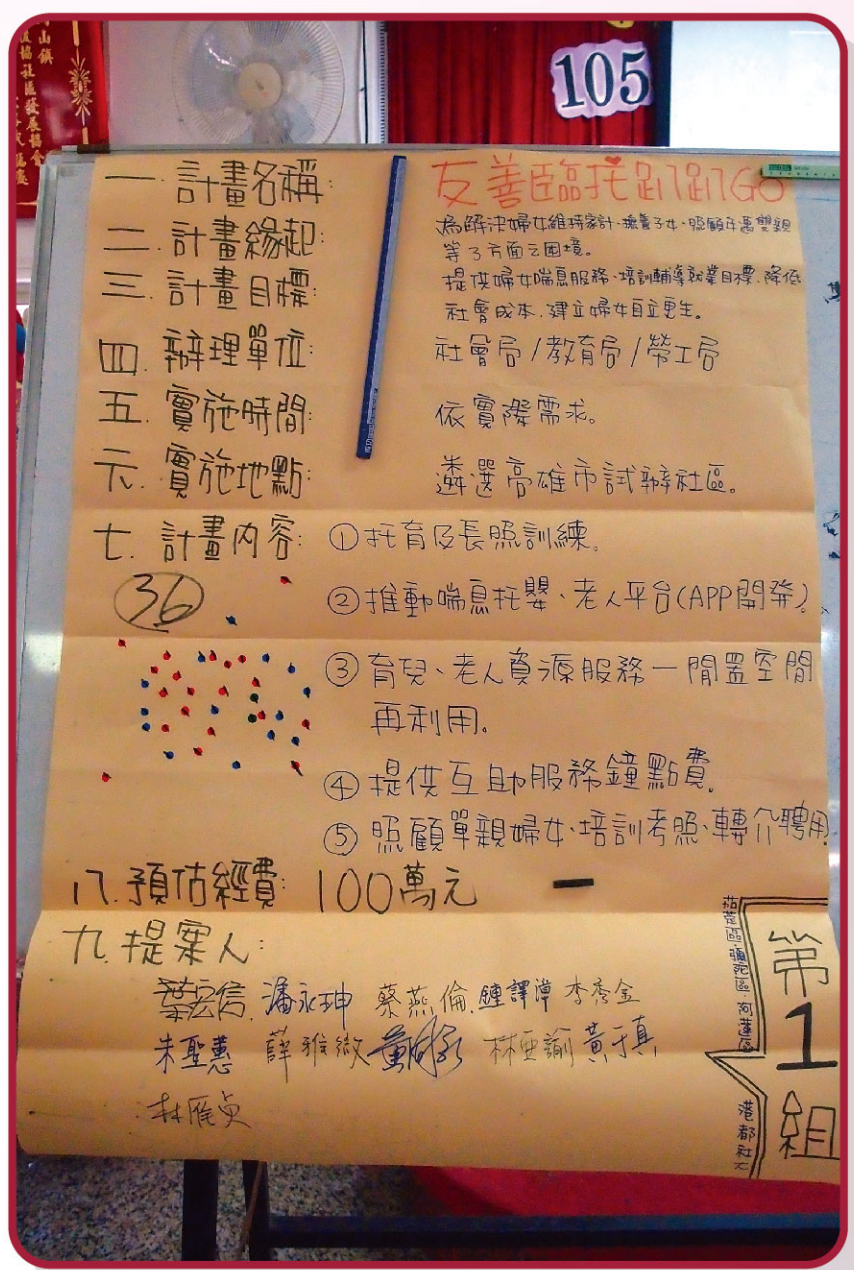 105
一. 計畫名稱: 友善臨托趴趴GO
二. 計畫緣起: 為解決婦女維持家計、撫養子女、照顧年邁雙親
等3方面之困境。
三. 計畫目標: 提供婦女喘息服務、培訓輔導就業目標、降低
社會成本、建立婦女自立更生。
四. 辦理單位: 社會局/教育局/勞工局
五. 實施時間: 依實際需求。
六. 實施地點: 遴選高雄市試辦社區。
七. 計畫內容: ①托育及長照訓練。
36
②推動喘息托嬰、老人平台(APP開發)。
③育兒、老人資源服務一閒置空間
再利用。
④提供互助服務鐘點費。
⑤照顧單親婦女、培訓考照、轉介聘用
八. 預估經費: 100萬元
九. 提案人:
葉宏信 潘永珅 蔡燕倫 鍾譯潭 李秀金
朱聖蕙 薛雅微 林亞諭 黃于真
林雁貞
第1組
茄萣區、彌陀區、阿蓮區
港都社大